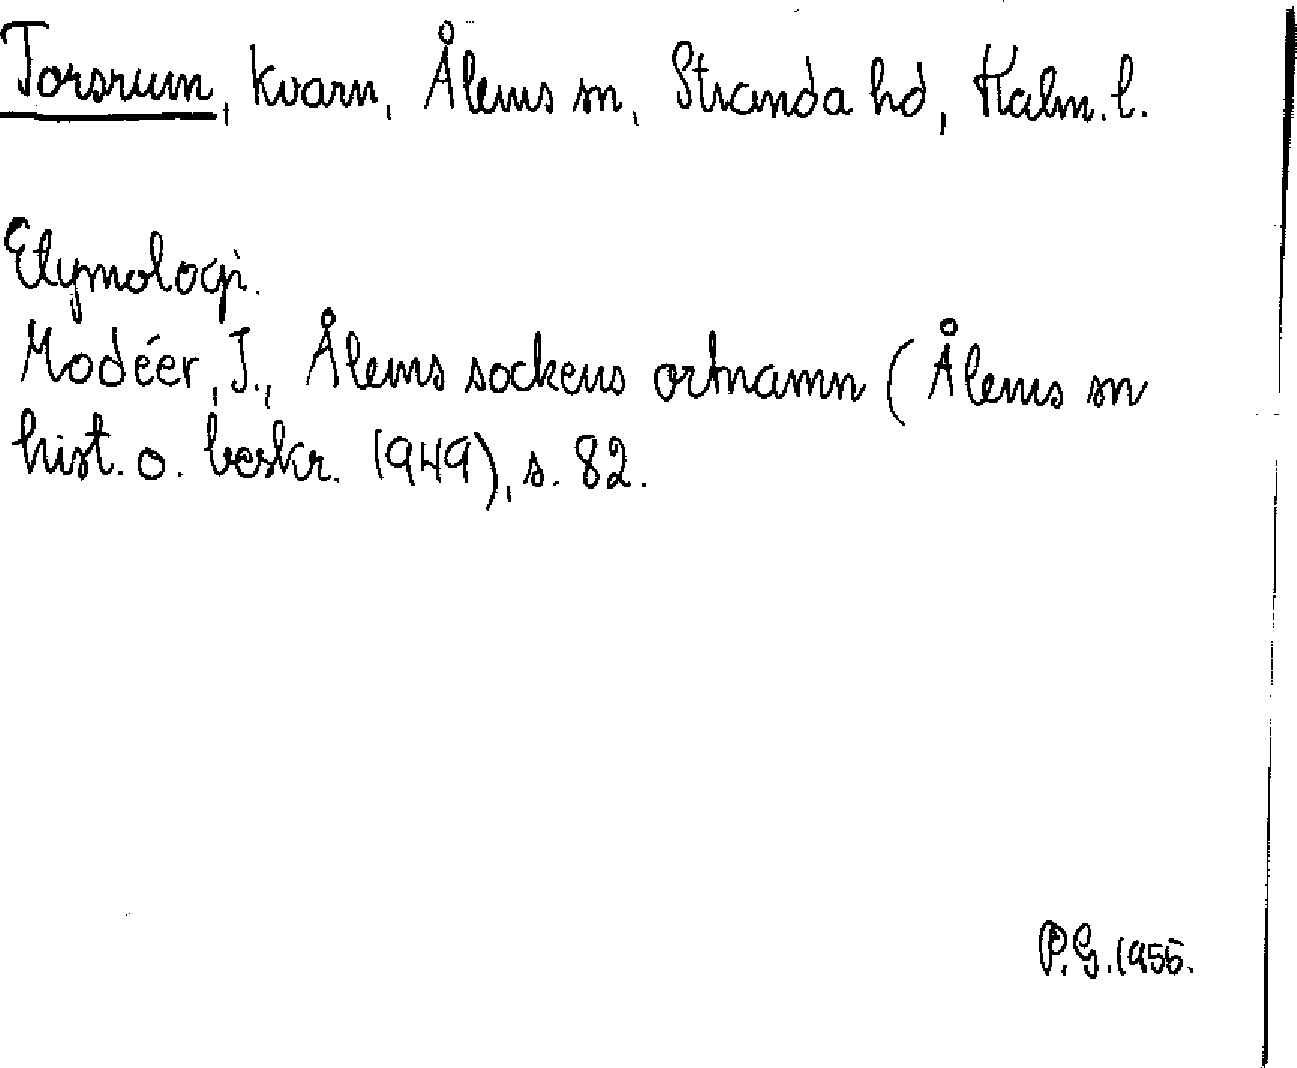 Torsrum, kvarn, Ålems sn, Stranda hd, Kalm. l.
Etymologi.
Modéer, I., Ålems sockens ortnamn (Ålems sn
hist. o. beskr. 1949), s. 82.
P.G. 1955.